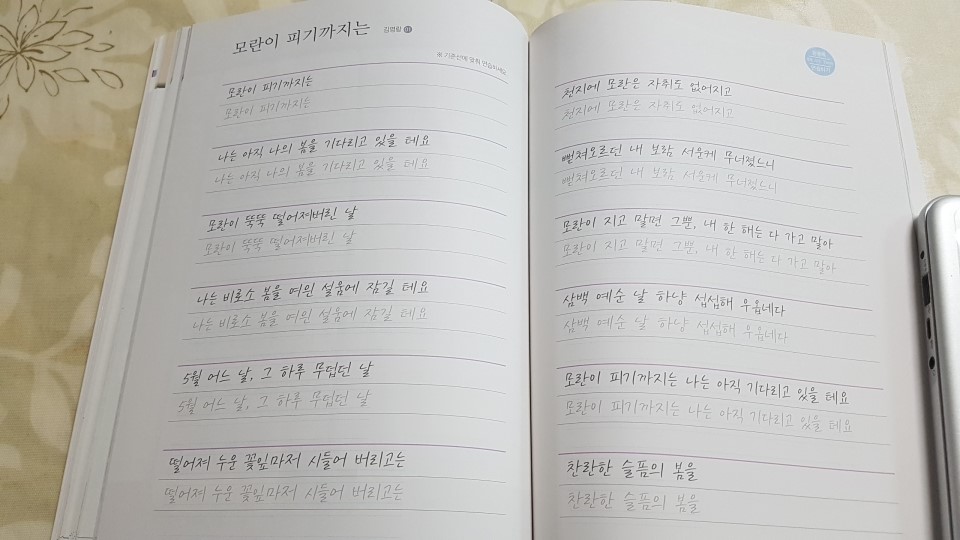 모란이 피기까지는 김영랑 01
※ 기준선에 맞춰 연습하세요.
모란이 피기까지는
모란이 피기까지는
나는 아직 나의 봄을 기다리고 있을 테요
나는 아직 나의 봄을 기다리고 있을 테요
모란이 뚝뚝 떨어져버린 날
모란이 뚝뚝 떨어져버린 날
나는 비로소 봄을 여읜 설움에 잠길 테요
나는 비로소 봄을 여읜 설움에 잠길 테요
5월 어느 날, 그 하루 무덥던 날
5월 어느 날, 그 하루 무덥던 날
떨어져 누운 꽃잎마저 시들어 버리고는
떨어져 누운 꽃잎마저 시들어 버리고는
천지에 모란은 자취도 없어지고
천지에 모란은 자취도 없어지고
뻗쳐오르던 내 보람 서운케 무너졌느니
뻗쳐오르던 내 보람 서운케 무너졌느니
모란이 지고 말면 그뿐, 내 한 해는 다 가고 말아
모란이 지고 말면 그뿐, 내 한 해는 다 가고 말아
삼백 예순 날 하냥 섭섭해 우옵네다
삼백 예순 날 하냥 섭섭해 우옵네다
모란이 피기까지는 나는 아직 기다리고 있을 테요
모란이 피기까지는 나는 아직 기다리고 있을 테요
찬란한 슬픔의 봄을
찬란한 슬픔의 봄을